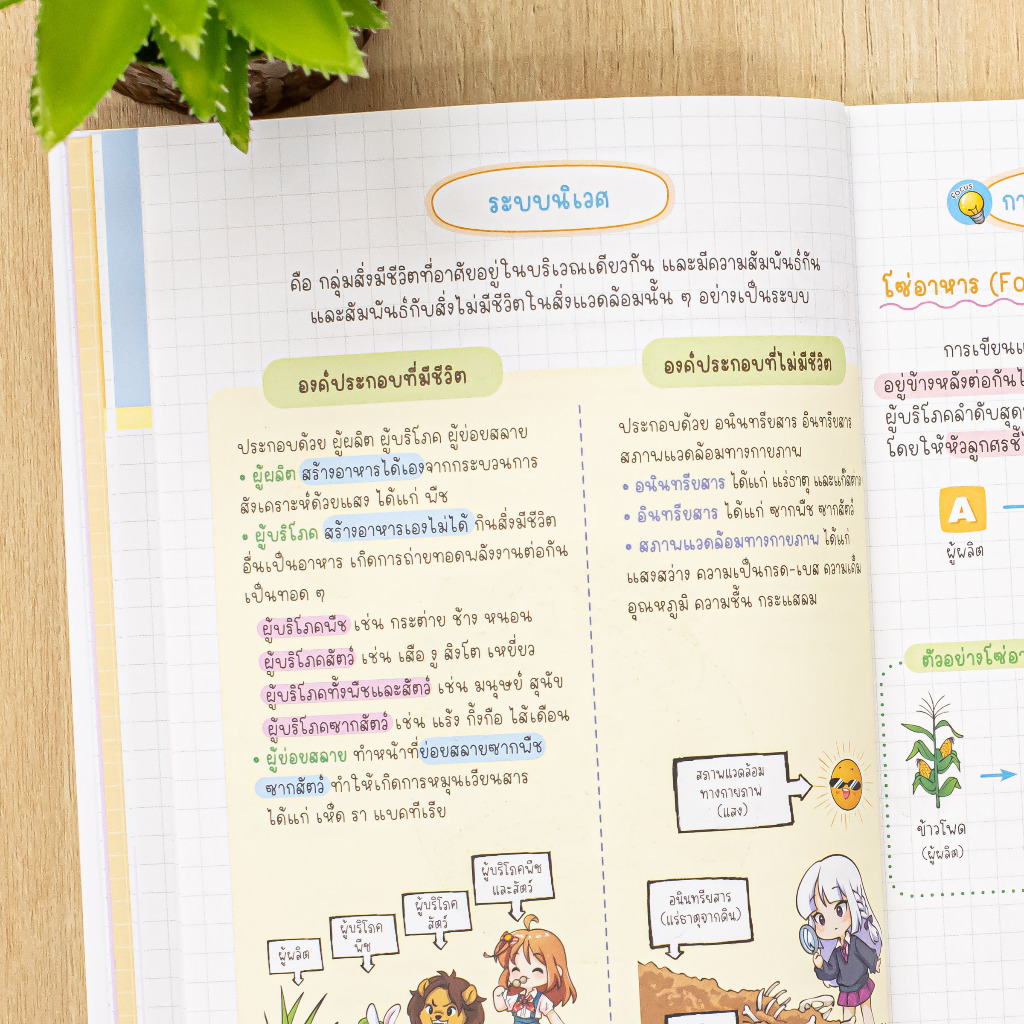 ระบบนิเวศ
คือ กลุ่มสิ่งมีชีวิตที่อาศัยอยู่ในบริเวณเดียวกัน และมีความสัมพันธ์กัน
และสัมพันธ์กับสิ่งไม่มีชีวิตในสิ่งแวดล้อมนั้น ๆ อย่างเป็นระบบ
องค์ประกอบที่มีชีวิต
ประกอบด้วย ผู้ผลิต ผู้บริโภค ผู้ย่อยสลาย
• ผู้ผลิต สร้างอาหารได้เองจากกระบวนการ
สังเคราะห์ด้วยแสง ได้แก่ พืช
• ผู้บริโภค สร้างอาหารเองไม่ได้ กินสิ่งมีชีวิต
อื่นเป็นอาหาร เกิดการถ่ายทอดพลังงานต่อกัน
เป็นทอด ๆ
ผู้บริโภคพืช เช่น กระต่าย ช้าง หนอน
ผู้บริโภคสัตว์ เช่น เสือ งู สิงโต เหยี่ยว
ผู้บริโภคทั้งพืชและสัตว์ เช่น มนุษย์ สุนัข
ผู้บริโภคซากสัตว์ เช่น แร้ง กิ้งกือ ไส้เดือน
• ผู้ย่อยสลาย ทำหน้าที่ย่อยสลายซากพืช
ซากสัตว์ ทำให้เกิดการหมุนเวียนสาร
ได้แก่ เห็ด รา แบคทีเรีย
ผู้ผลิต
ผู้บริโภค
พืช
ผู้บริโภค
สัตว์
ผู้บริโภคพืช
และสัตว์
องค์ประกอบที่ไม่มีชีวิต
ประกอบด้วย อนินทรียสาร อินทรียสาร
สภาพแวดล้อมทางกายภาพ
• อนินทรียสาร ได้แก่ แร่ธาตุ และแก๊สต่าง
• อินทรียสาร ได้แก่ ซากพืช ซากสัตว์
• สภาพแวดล้อมทางกายภาพ ได้แก่
แสงสว่าง ความเป็นกรด-เบส ความเค็ม
อุณหภูมิ ความชื้น กระแสลม
สภาพแวดล้อม
ทางกายภาพ
(แสง)
อนินทรียสาร
(แร่ธาตุจากดิน)
FOCUS
โซ่อาหาร (Fo
การเขียน
อยู่ข้างหลังต่อกันไ
ผู้บริโภคลำดับสุด
โดยให้หัวลูกศรชี้
A
ผู้ผลิต
ตัวอย่างโซ่อา
ข้าวโพด
(ผู้ผลิต)